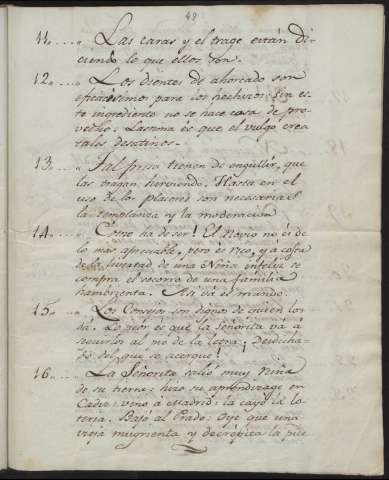 49
11.... Las caras y el trage estan di-
ciendo lo que ellos son.
12.... Los dientes de ahorcado son
eficacisimos para los hechizos: sin es-
te ingrediente no se hace cosa de pro-
vecho: Lastima es que el vulgo crea
tales desatinos.
13.... Tal prisa tienen de engullir, que
las tragan hirviendo. Hasta en el
uso de los placeres son necesarias
la templanza y la moderacion
14.... Como ha de ser! El Novio no es de
lo mas apreciable, pero es rico, y á costa
de la livertad de una Niña infeliz se
compra el socorro de una familia
hambrienta. Asi vá el mundo.
15.... Los Consejos son dignos de quien los
dá. Lo peor es que la Señorita vá á
seguirlos al pie de la letra; Desdicha-
do del que se acerque!
16.... La Señorita salió muy Niña
de su tierra: hizo su aprendizage en
Cadiz: vino á Madrid: la cayó la lo-
teria. Bajó al Prado: Oye que una
vieja mugrienta y decrepita la pide